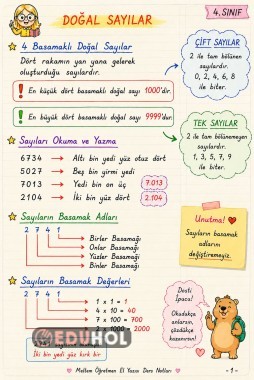 DOĞAL SAYILAR
4. SINIF
4 Basamaklı Doğal Sayılar
Dört rakamın yan yana gelerek
oluşturduğu sayılardır.
! En küçük dört basamaklı doğal sayı 1000'dir.
! En büyük dört basamaklı doğal sayı 9999'dur.
ÇİFT SAYILAR
2 ile tam bölünen
sayılardır.
0, 2, 4, 6, 8
ile biter.
TEK SAYILAR
2 ile tam bölünemeyen
sayılardır.
1, 3, 5, 7, 9
ile biter.
Sayıları Okuma ve Yazma
6734 → Altı bin yedi yüz otuz dört
5027 → Beş bin yirmi yedi
7013 → Yedi bin on üç
7.013
2104 → İki bin yüz dört
2.104
Unutma!
Sayıların basamak
adlarını
değiştiremeyiz.
Sayıların Basamak Adları
2 7 4 1
Birler Basamağı
Onlar Basamağı
Yüzler Basamağı
Binler Basamağı
Sayıların Basamak Değerleri
2 7 4 1
1 x 1 = 1
4 x 10 = 40
7 x 100 = 700
2 x 1000 = 2000
EDUHOL
İki bin yedi yüz kırk bir
Dosti
İpucu!
Okudukça
anlarsın,
çözdükçe
kazanırsın!
Meltem Öğretmen El Yazısı Ders Notları
- 1 -